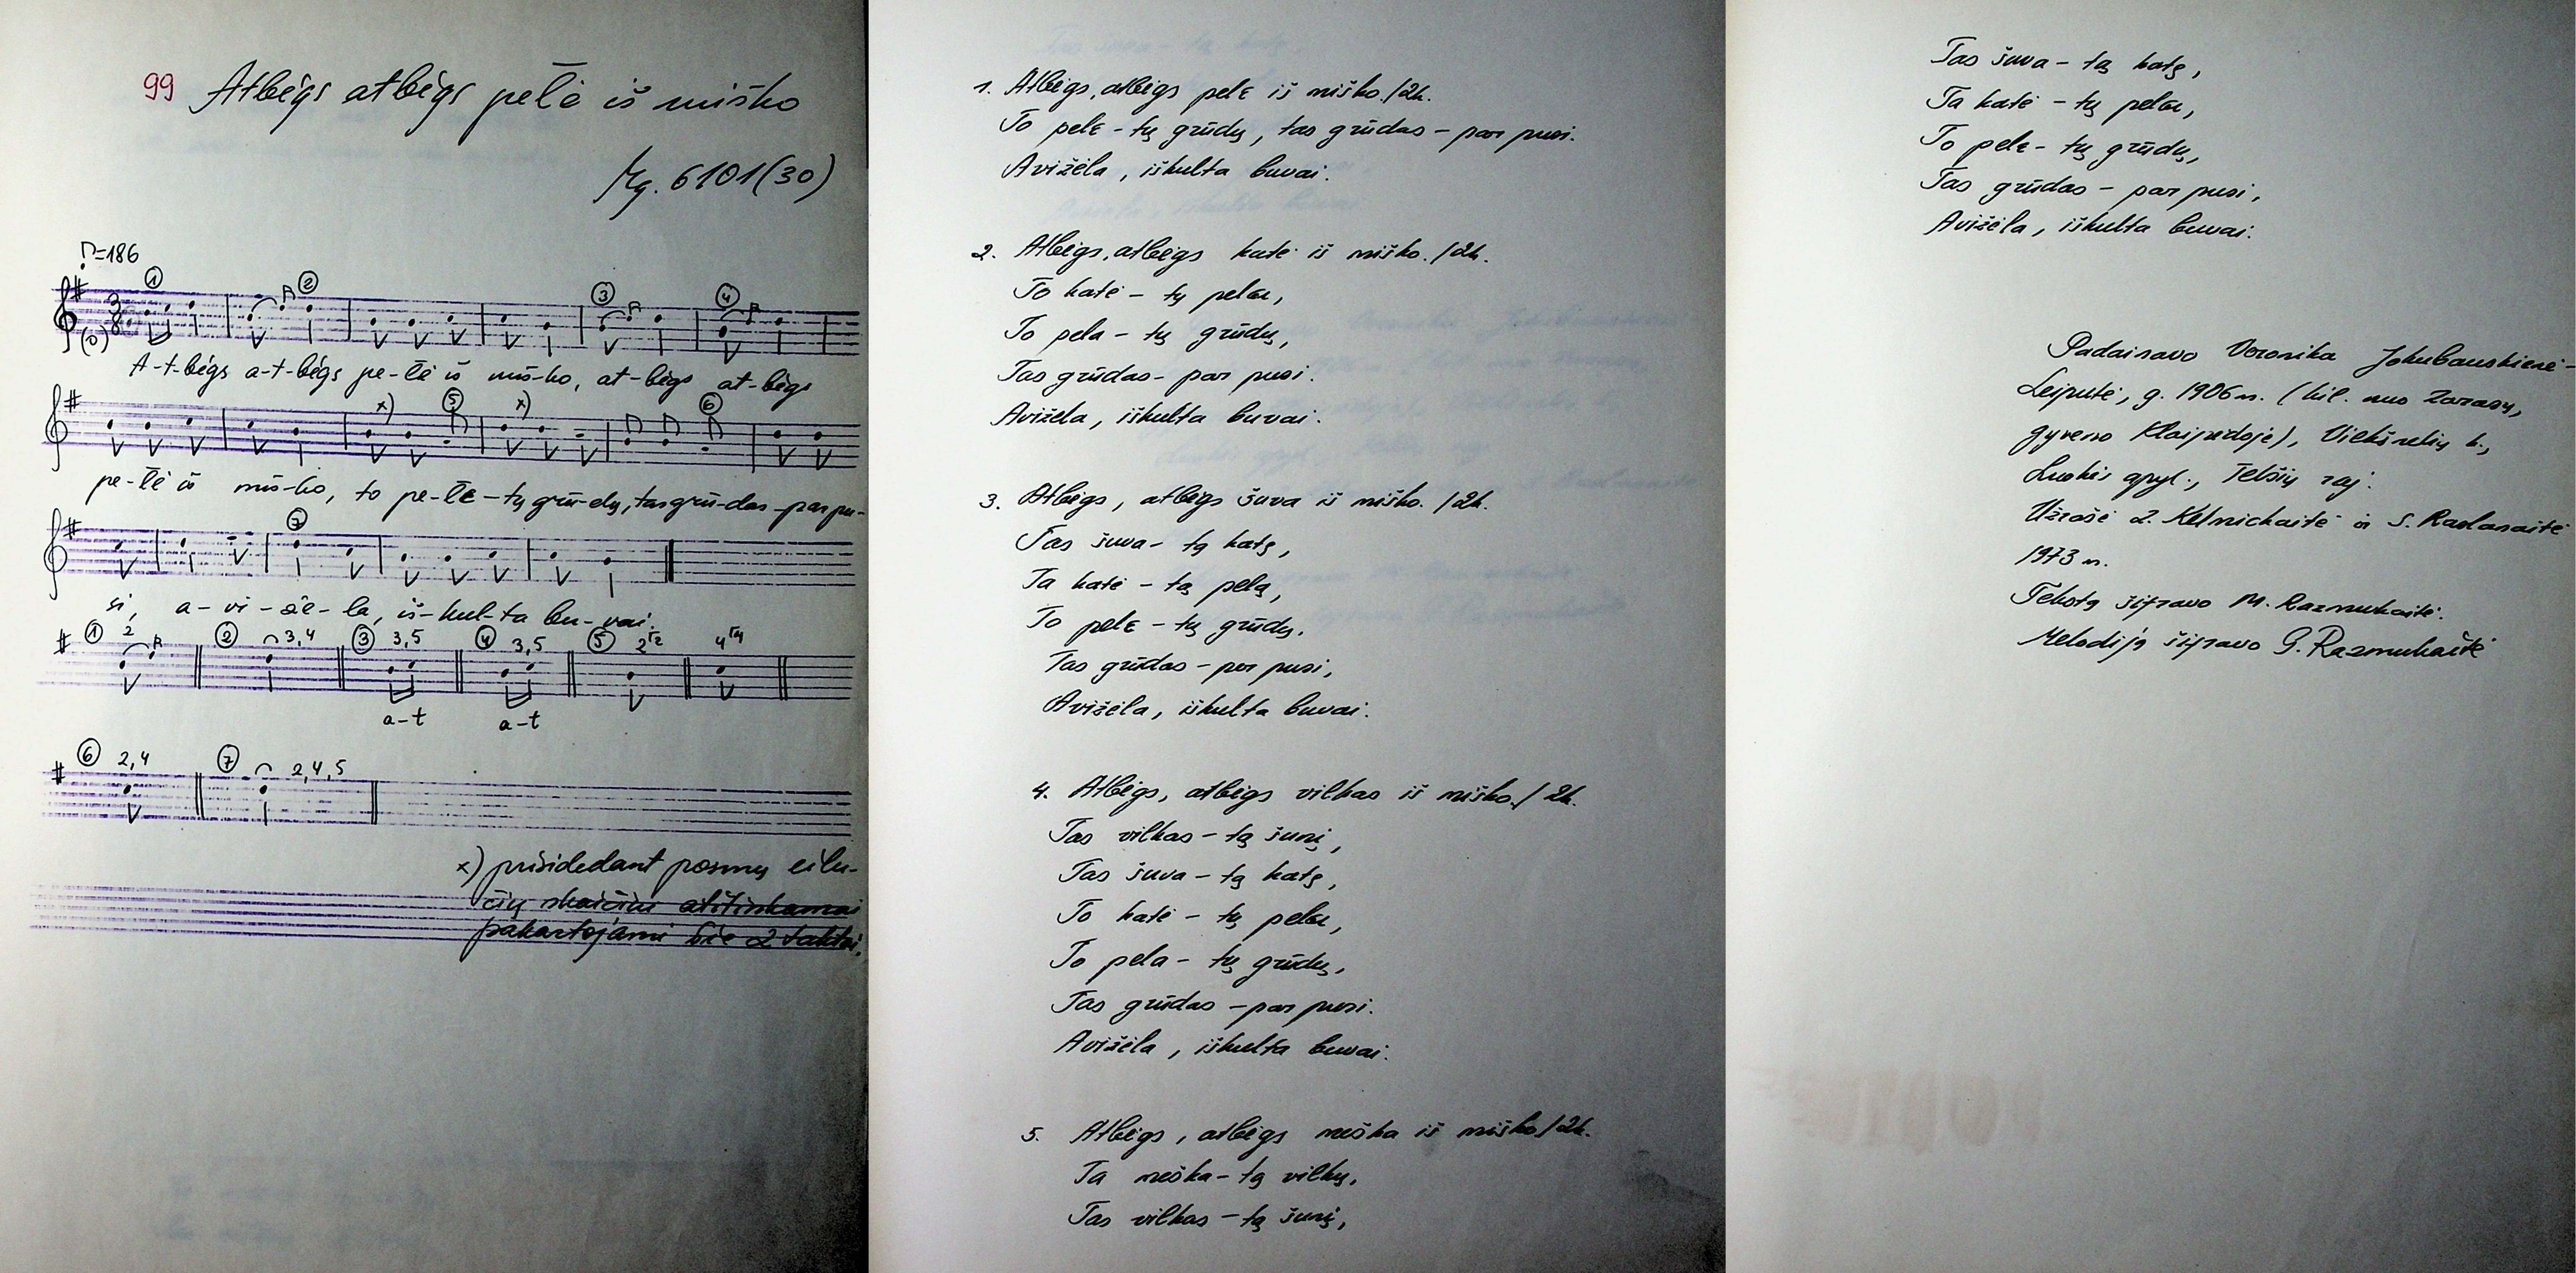 99 Atbėgs atbėgs pelė iš miško
Mg. 6101(30)
♪=186
① ② ③ ④
3
8
A-t-bėgs a-t-bėgs pe-lė iš miš-ko, at-bėgs at-bėgs
x) ⑤ x) ⑥
pe-lė iš miš-ko, to pe-lɛ-tų grū-dų, tas grū-das-par pu-
⑦
si, a-vi-žė-la, iš-kul-ta bu-vai.
① 2 ② 3,4 ③ 3,5 ④ 3,5 ⑤
a-t a-t
⑥ 2,4 ⑦ 2,4,5
x) prisidedant posmų eilu-
čių skaičiui atitinkamai
pakartojami šie 2 taktai.
1. Atbėgs, atbėgs pelɛ iš miško./2k.
To pelɛ - tų grūdų, tas grūdas - par pusi.
Avižėla, iškulta buvai.
2. Atbėgs, atbėgs katė iš miško./2k.
To katė - tų pelɛ,
To pela - tų grūdų,
Tas grūdas - par pusi.
Avižėla, iškulta buvai.
3. Atbėgs, atbėgs šuva iš miško. /2k.
Tas šuva - tą katę,
Ta katė - tą pelą,
To pelɛ - tų grūdų.
Tas grūdas - par pusi,
Avižėla, iškulta buvai.
4. Atbėgs, atbėgs vilkas iš miško./2k.
Tas vilkas - tą šunį,
Tas šuva - tą katę,
To katė - tų pelɛ,
To pela - tų grūdų,
Tas grūdas - par pusi.
Avižėla, iškulta buvai.
5. Atbėgs, atbėgs meška iš miško/2k.
Ta meška - tą vilkų.
Tas vilkas - tą šunį,
Tas šuva - tą katę,
Ta katė - tų pelɛ,
To pelɛ - tų grūdų,
Tas grūdas - par pusi,
Avižėla, iškulta buvai.
Padainavo Veronika Jokubauskienė-
Leiputė, g. 1906 m. (kil. nuo Zarasų,
gyveno Klaipėdoje), Viekšnelių k.,
Luokės apyl., Telšių raj.
Užrašė L. Kelnickaitė ir S. Radanaitė
1973 m.
Tekstą šifravo M. Razmukaitė.
Melodiją šifravo G. Razmukaitė